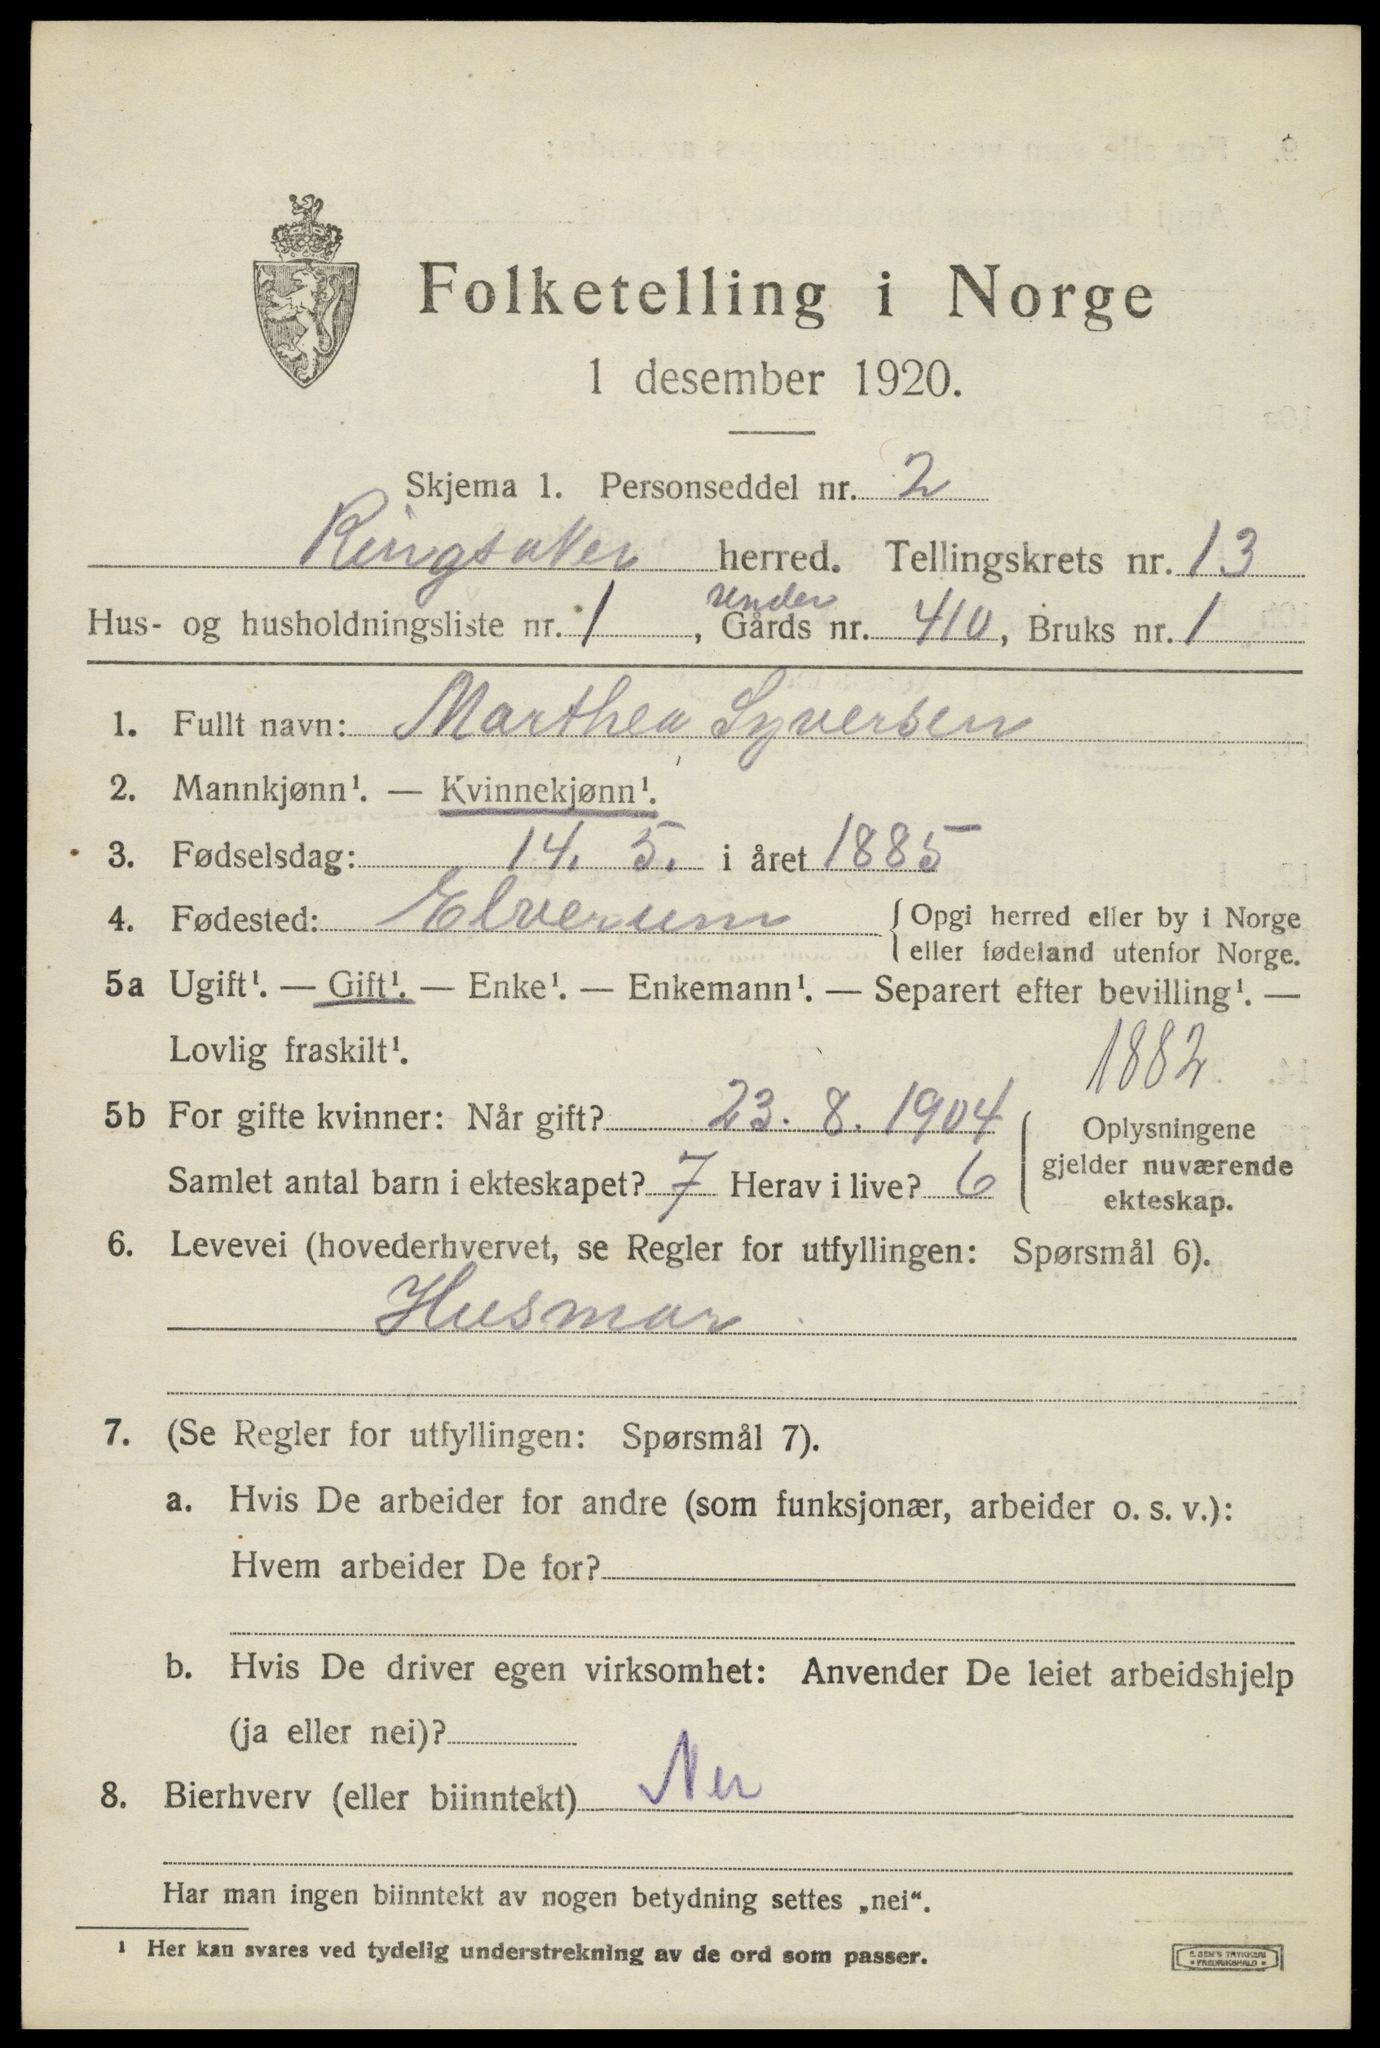 Folketelling i Norge
1 desember 1920.
Skjema 1. Personseddel nr. 2
Ringsaker herred. Tellingskrets nr. 13
under
Hus- og husholdningsliste nr. 1, Gårds nr. 410, Bruks nr. 1
1. Fullt navn: Marthea Syversen
2. Mannkjønn¹. — Kvinnekjønn¹.
3. Fødselsdag: 14. 5. i året 1885
4. Fødested: Elverum { Opgi herred eller by i Norge
eller fødeland utenfor Norge.
5a Ugift¹. — Gift¹. — Enke¹. — Enkemann¹. — Separert efter bevilling¹. —
Lovlig fraskilt¹.
1882
5b For gifte kvinner: Når gift? 23. 8. 1904
Samlet antal barn i ekteskapet? 7 Herav i live? 6
Oplysningene
gjelder nuværende
ekteskap.
6. Levevei (hovederhvervet, se Regler for utfyllingen: Spørsmål 6).
Husmor
7. (Se Regler for utfyllingen: Spørsmål 7).
a. Hvis De arbeider for andre (som funksjonær, arbeider o. s. v.):
Hvem arbeider De for?
b. Hvis De driver egen virksomhet: Anvender De leiet arbeidshjelp
(ja eller nei)?
8. Bierhverv (eller biinntekt) Nei
Har man ingen biinntekt av nogen betydning settes „nei“.
¹ Her kan svares ved tydelig understrekning av de ord som passer.
E. SEM'S TRYKKERI
* FREDRIKSHALD *